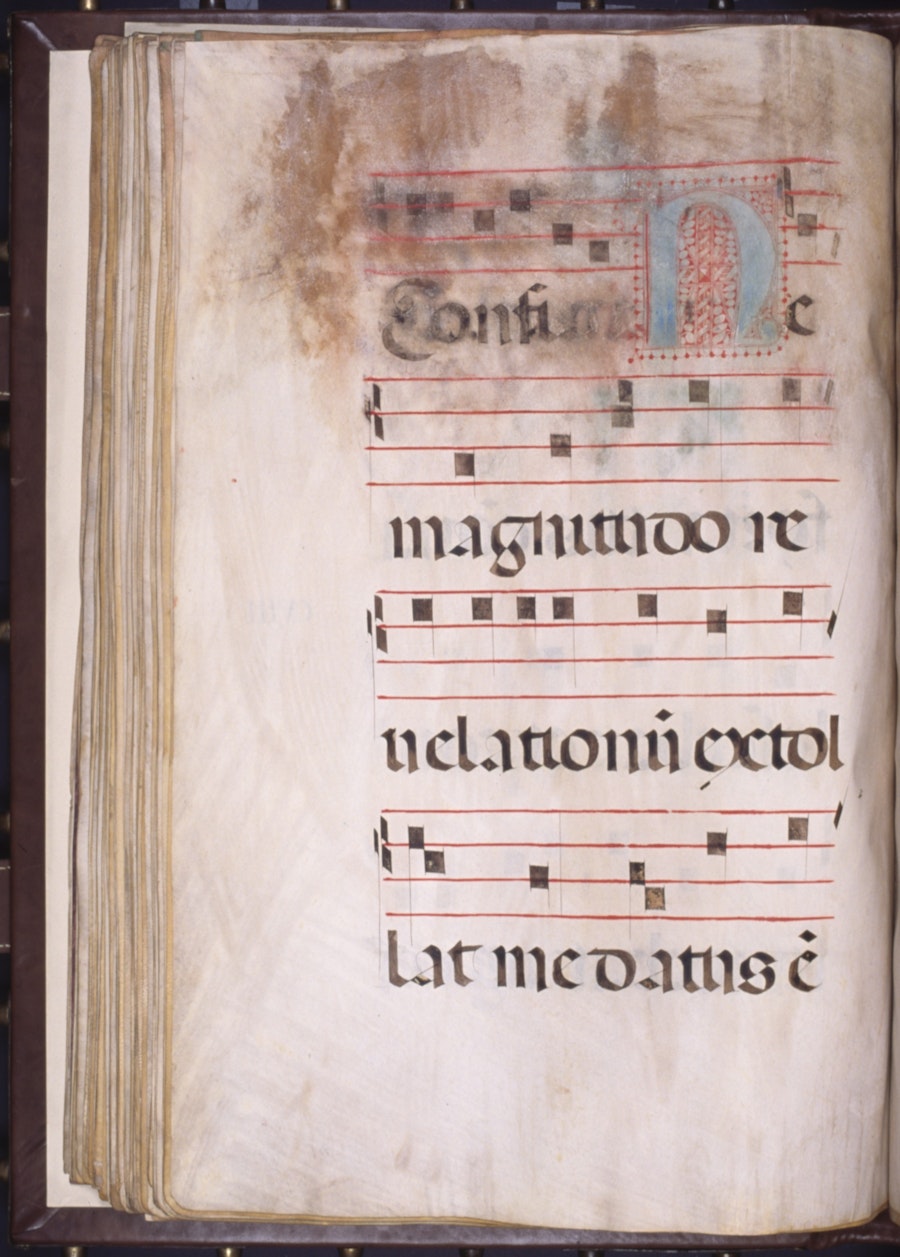 Ne
magnitudo re
uelationũ extol
lat me datus ẽ